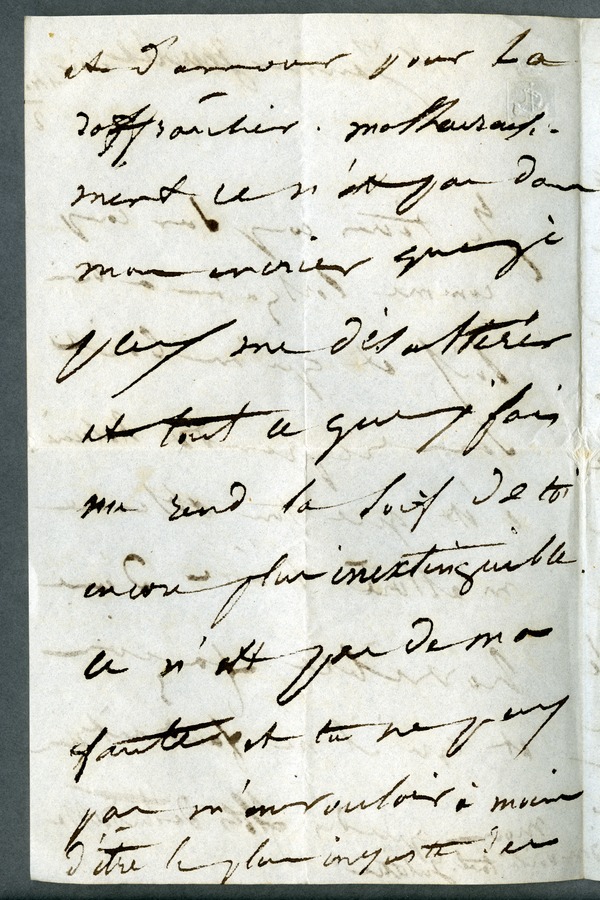 et d'amour pour la
raffraichir. malheureuse-
ment ce n'est pas dans
mon encrier que je
peux me désaltérer
et tout ce que j'y fais
me rend la soif de toi
encore plus inextinguible.
ce n'est pas de ma
faute et tu ne peux
pas m'en vouloir à moins
d'être le plus injuste des